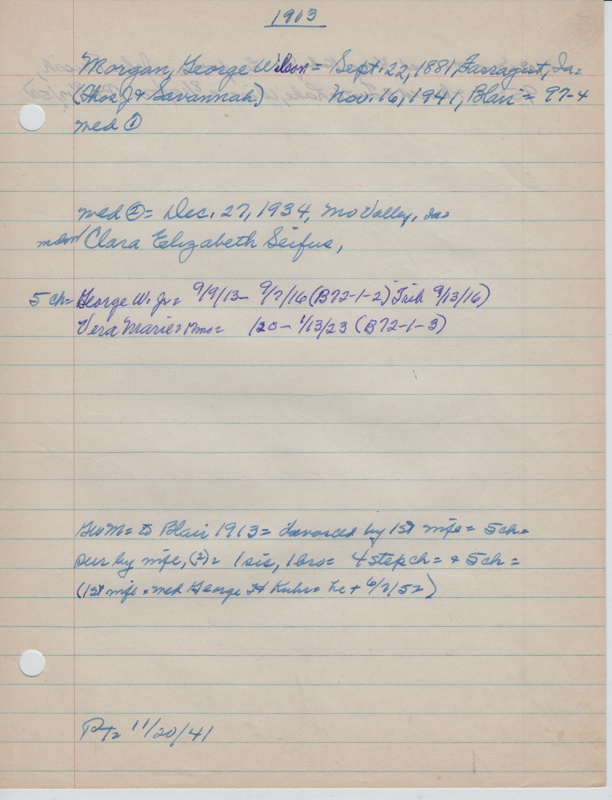 1913
Morgan, George Wilson = Sept. 22, 1881, Farragut, Ia=
(Thos J & Savannah) Nov. 16, 1941, Blair = 97-4
med ①
med ② = Dec. 27, 1934, Mo Valley, Ia=
Clara Elizabeth Seifus,
5 ch= George W. Jr= 9/9/13- 9/7/16 (B72-1-2) Trib 9/13/16)
Vera Marie= 120- 1/13/23 (B72-1-3)
Geo M= to Blair 1913= divorced by 1st wife= 5ch=
sur by wife, (2)= 1 sis, 1 bro= 4 stepch= & 5ch=
(1st wife = med George H Kuhr= he + 6/2/52)
11/20/41